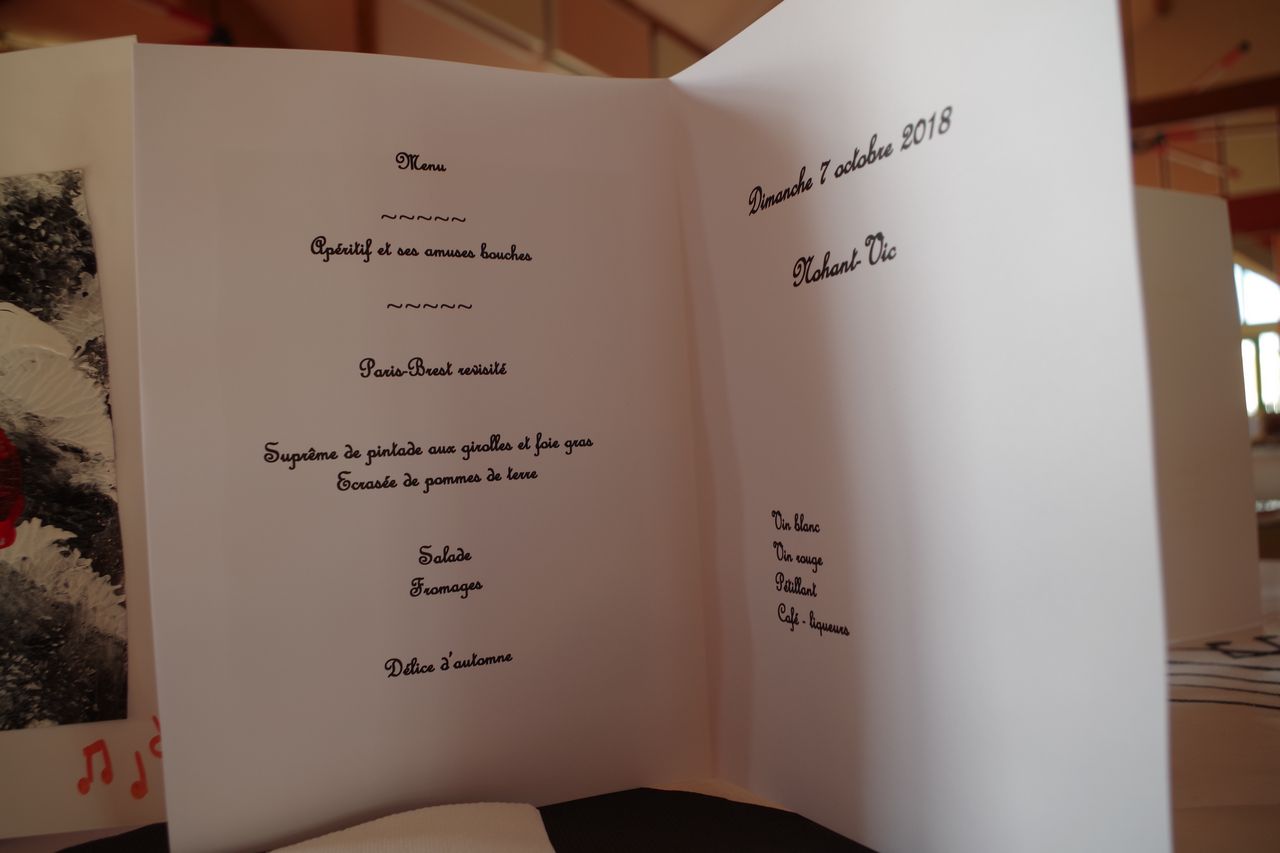 Menu
~~~~~
Apéritif et ses amuses bouches
~~~~~
Paris-Brest revisité
Suprême de pintade aux girolles et foie gras
Ecrasée de pommes de terre
Salade
Fromages
Délice d'automne
Dimanche 7 octobre 2018
Nohant-Vic
Vin blanc
Vin rouge
Pétillant
Café - liqueurs